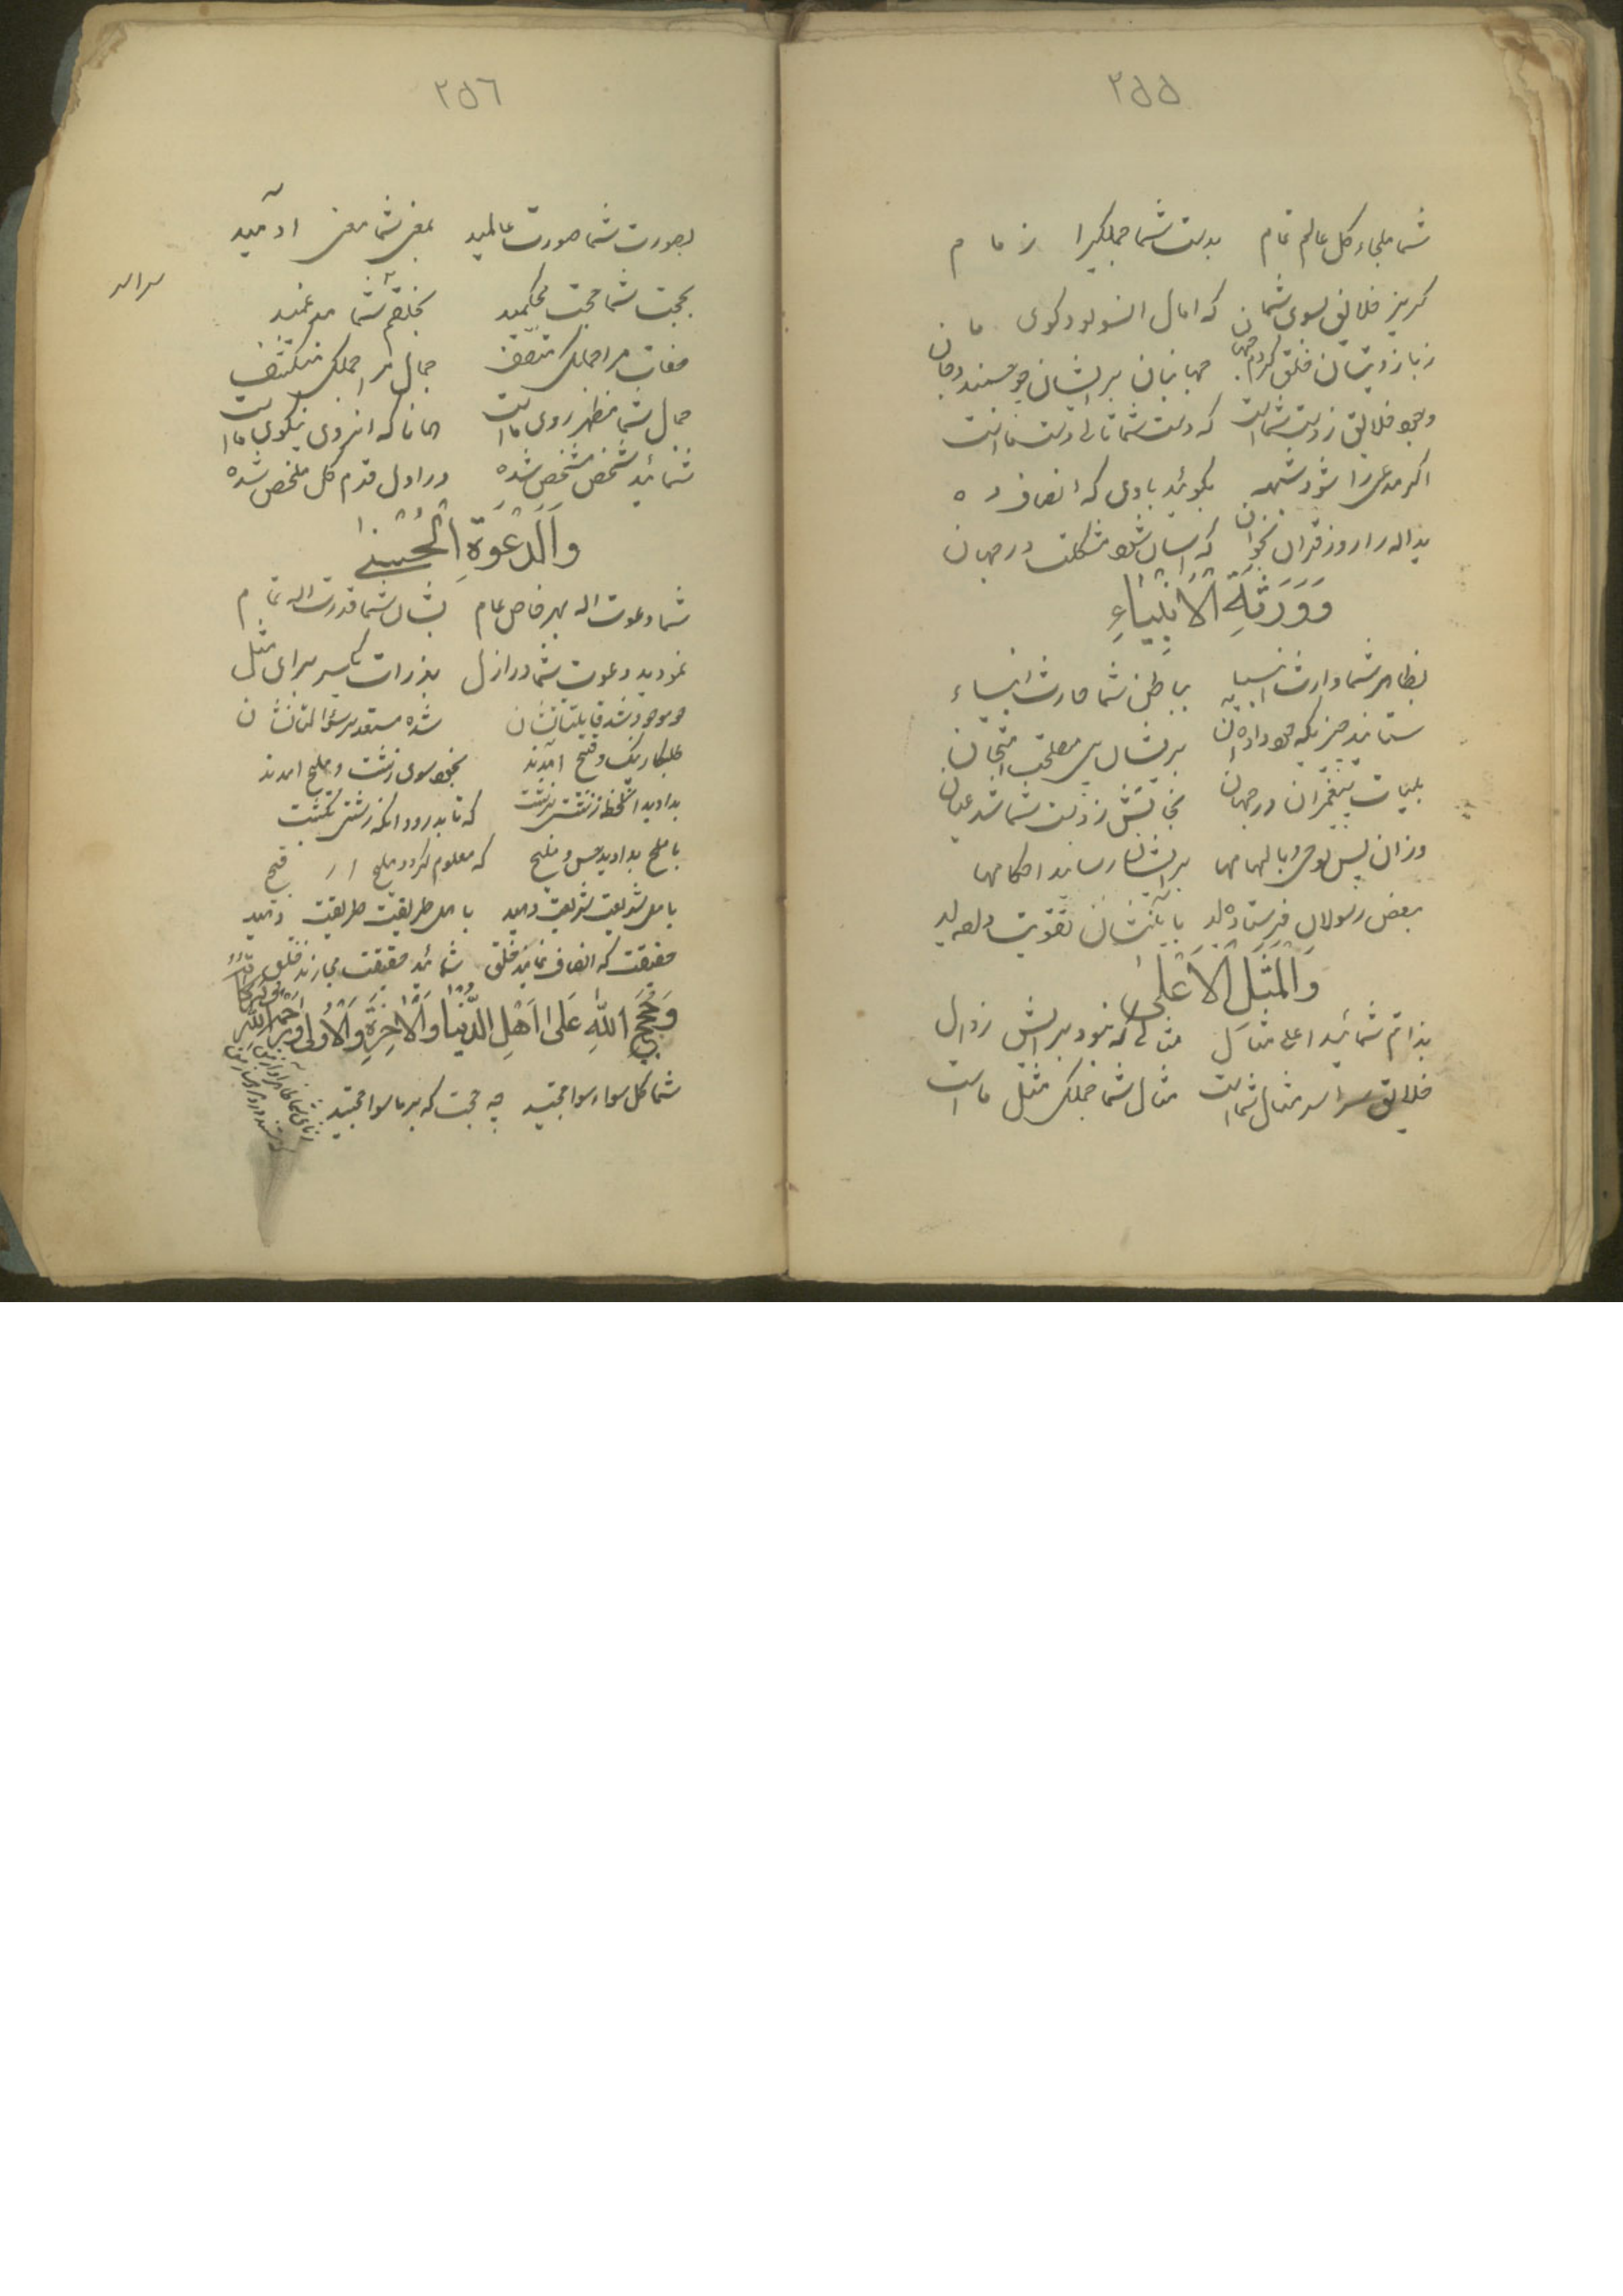 ۲۵۵
شما ملجاء کل عالم تمام بدست شما جملگیرا زمام
گریز خلایق بسوی شمان که امال انسو بود کوی ما
ز بازویتان خلق کردم جهان جهانیان بریشان چو جسمند وجان
وجود خلایق ز دست شماست که دست شما تالی دست ماست
اگر مدعی را شود شبهه بگوئید بادی که انصاف ده
یدالله را روز قران بخوان که اسان شود مشکلت در جهان
وَوَرَثَةِ الْاَنْبِیَاءِ
بظاهر شما وارث انبیا بباطن شما وارث انبیاء
ستانید چیزیکه خود داده‌اند بریشان پی مصلحت امتحان
بلیات پیغمبران در جهان نجاتش ز دست شما شد عیان
وزان پس بوحی و بالهامها بریشان رسانید احکامها
بعض رسولان فرستاده‌اید باتانشان تقویت داده‌اید
وَالْمَثَلِ الْاَعْلٰی
بذاتم شمائید اعلی مثال مثالی که نبود برایش زوال
خلایق سراسر مثال شماست مثال شما جملگی مثل ماست
۲۵٦
بصورت شما صورت عالمید بمغنی شما معنی ادمید
بحجت شما حجت محکمید بخلقم شما مدغمید
سراسر
صفات مرا جملگی متصف جمال مرا جملگی منکشف
جمال شما مظهر روی ماست همانا که انروی نیکوی ماست
شمائید شخص مشخص شده در اول قدم کل ملخص شده
وَالدَّعْوَةِ الْحُسْنٰی
شما دعوت اله بهر خاص عام بشان شما قدرت اله تمام
نمودید دعوت شما در ازل بذرات یکسر برای مثل
چو موجود شد قابلیاتشان شده مستعد بر سؤالاتشان
طلبکار نیک و قبیح امدند بخود سوی زشت و ملیح امدند
بدادید انلحظه زشتش بزشت که تا بدرود انکه زشتی بکشت
باملح بدادید حسن و ملیح که معلوم گردد ملیح از قبیح
باهل شریعت شریعت دهید باهل طریقت طریقت دهید
حقیقت که انصاف نماید خلق شمائید حقیقت مجازند خلق
وَحُجَجِ اللهِ عَلٰی اَهْلِ الدُّنْیَا وَالْاٰخِرَةِ وَالْاُولٰی وَرَحْمَةُ اللهِ وَبَرَکَاتُهُ
شما کل سواء سوا حجتید چه حجت که بر ما سوا حجتید